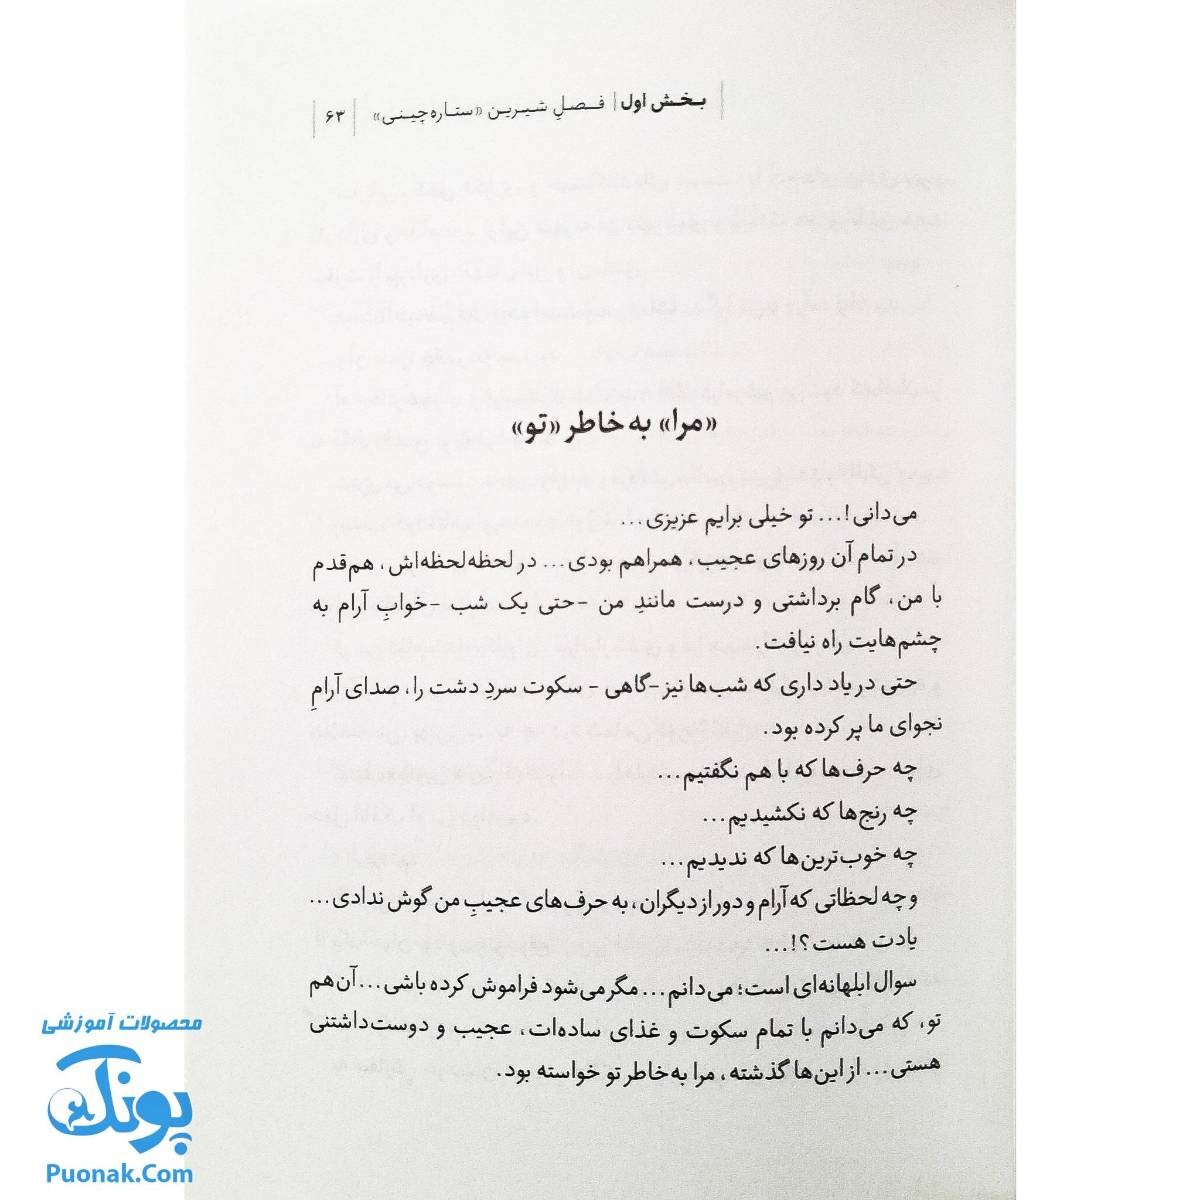 بخش اول | فصلِ شیرین «ستاره‌چینی» | ۶۳
«مرا» به خاطر «تو»
می‌دانی!... تو خیلی برایم عزیزی...
در تمام آن روزهای عجیب، همراهم بودی... در لحظه‌لحظه‌اش، هم‌قدم
با من، گام برداشتی و درست مانندِ من -حتی یک شب -خوابِ آرام به
چشم‌هایت راه نیافت.
حتی در یاد داری که شب‌ها نیز -گاهی - سکوت سردِ دشت را، صدای آرامِ
نجوای ما پر کرده بود.
چه حرف‌ها که با هم نگفتیم...
چه رنج‌ها که نکشیدیم...
چه خوب‌ترین‌ها که ندیدیم...
و چه لحظاتی که آرام و دور از دیگران، به حرف‌های عجیبِ من گوش ندادی...
یادت هست؟!...
سوال ابلهانه‌ای است؛ می‌دانم... مگر می‌شود فراموش کرده باشی... آن هم
تو، که می‌دانم با تمام سکوت و غذای ساده‌ات، عجیب و دوست‌داشتنی
هستی... از این‌ها گذشته، مرا به‌خاطر تو خواسته بود.
محصولات آموزشی
پونک
Puonak.Com